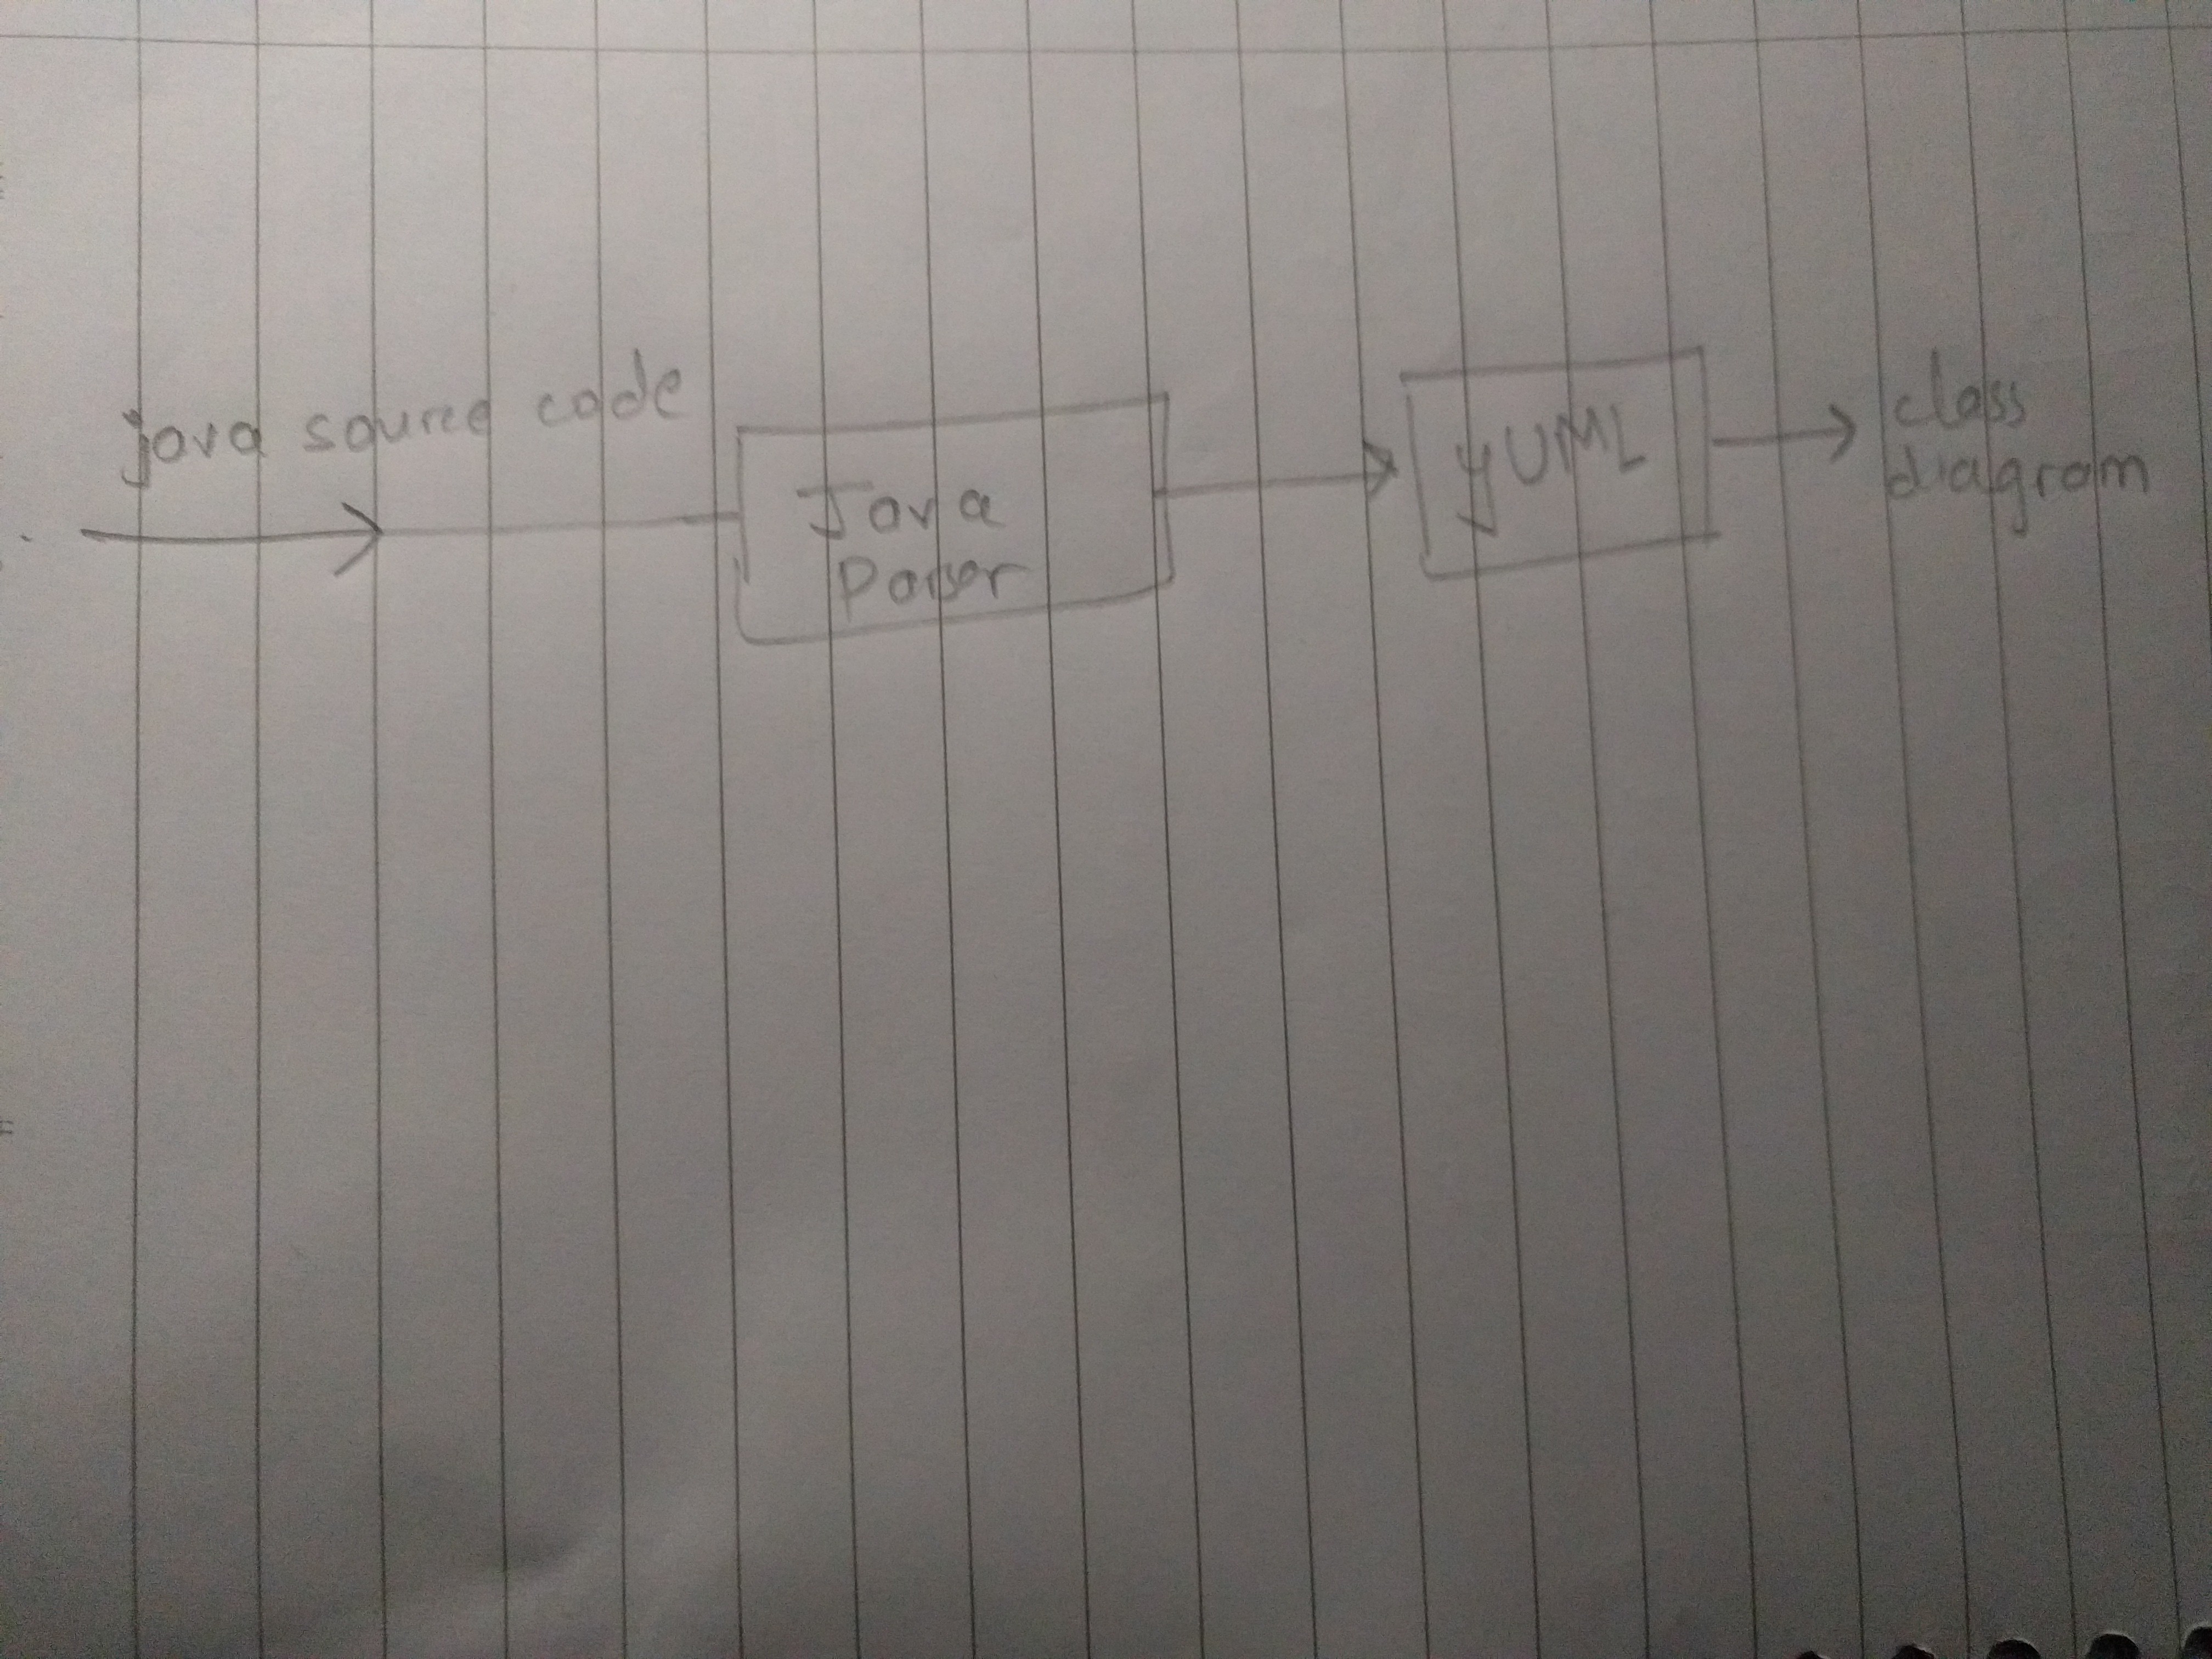 java source code
Java
Parser
yUML
class
diagram